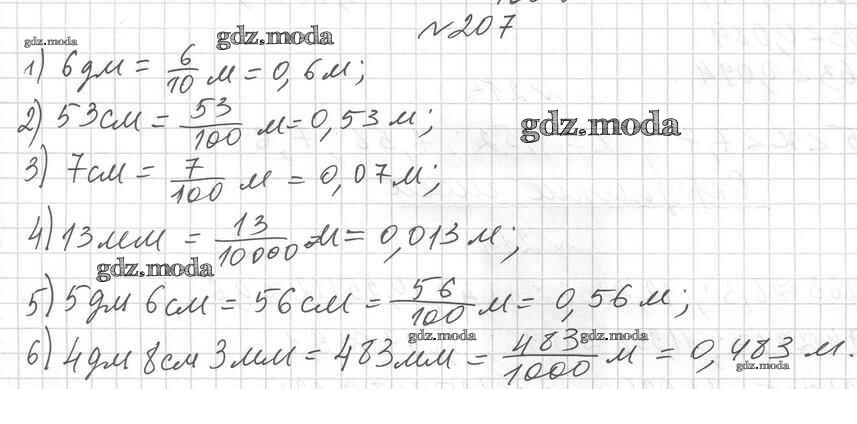 №207
gdz.moda gdz.moda
1) 6 дм = 6/10 м = 0,6 м;
2) 53 см = 53/100 м = 0,53 м;
gdz.moda
3) 7 см = 7/100 м = 0,07 м;
4) 13 мм = 13/10000 м = 0,013 м;
gdz.moda
5) 5 дм 6 см = 56 см = 56/100 м = 0,56 м;
gdz.moda gdz.moda
6) 4 дм 8 см 3 мм = 483 мм = 483/1000 м = 0,483 м.
gdz.moda